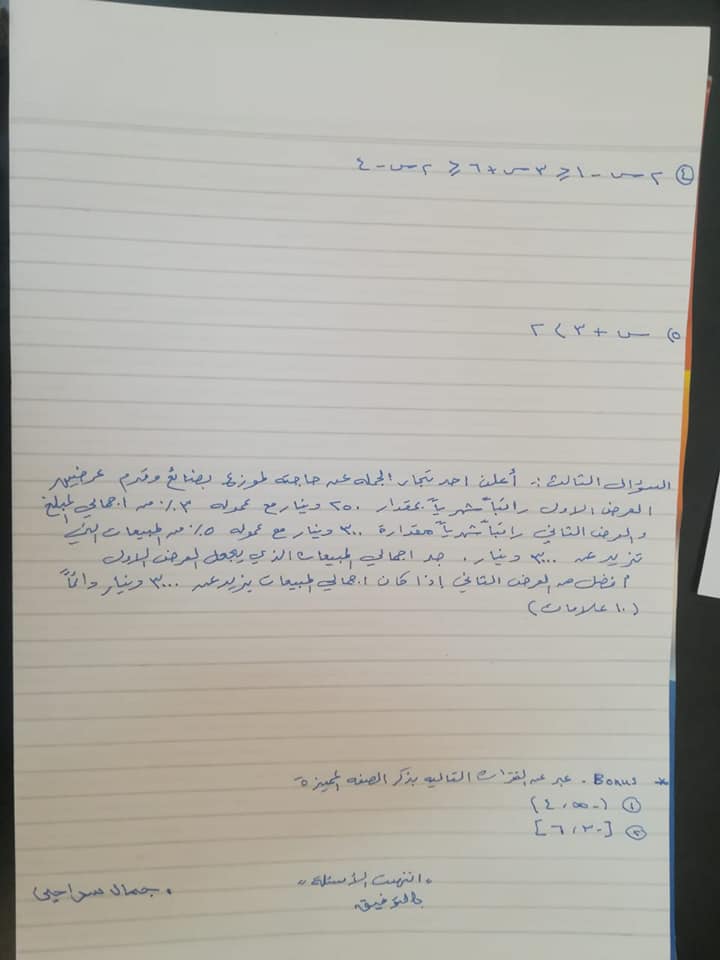 ④ ٢س - ١ ≥ ٣س + ٦ ≥ ٢س - ٤
٥) س + ٣ > ٢
السؤال الثالث :- أعلن احد تجار الجمله عن حاجته لموزع بضائع وقدم عرضين
العرض الاول راتباً شهرياً بمقدار ٢٥٠ دينار مع عموله ٣٪ من اجمالي المبلغ
والعرض الثاني راتباً شهرياً مقداره ٣٠٠ دينار مع عموله ٥٪ من المبيعات التي
تزيد عن ٣٠٠٠ دينار . جد اجمالي المبيعات الذي يجعل العرض الاول
أفضل من العرض الثاني إذا كان اجمالي المبيعات يزيد عن ٣٠٠٠ دينار دائماً
(١٠ علامات)
* Bonus . عبر عن الفترات التاليه بذكر الصفه المميزة
① (-∞ ، ٤)
② [-٣ ، ٦]
"انتهت الأسئلة"
بالتوفيق
. جمال